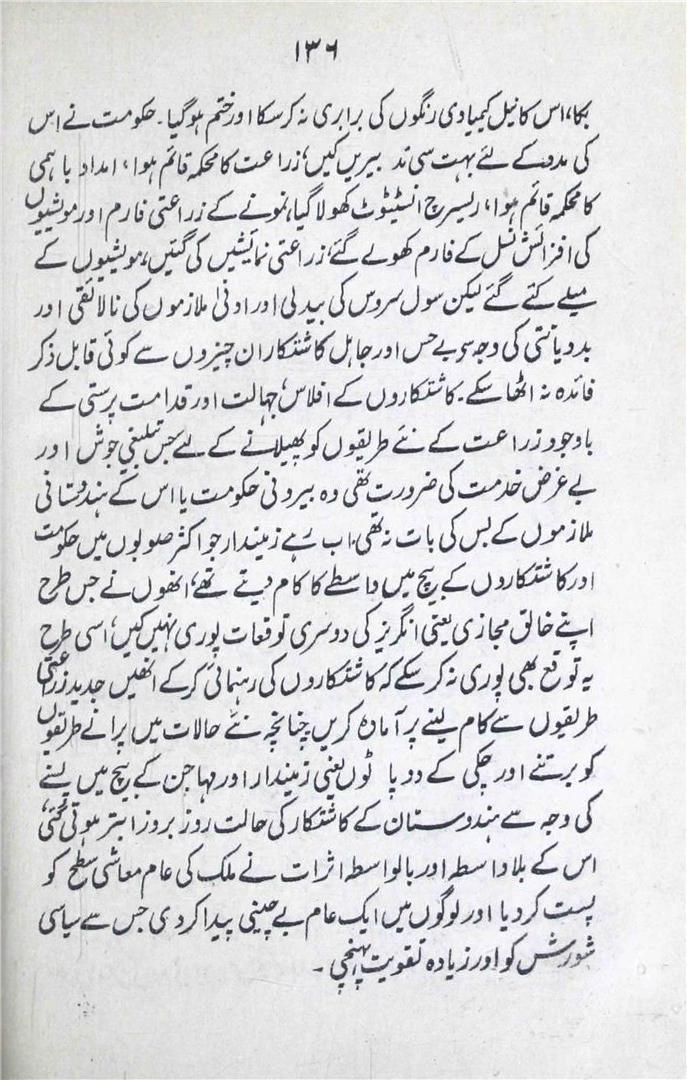 ۱۳۶
بکا، اس کا نیل کیمیاوی رنگوں کی برابری نہ کر سکا اور ختم ہو گیا۔ حکومت نے اس
کی مدد کے لئے بہت سی تد بیریں کیں، زراعت کا محکمہ قائم ہوا، امداد باہمی
کا محکمہ قائم ہوا، ریسرچ انسٹیٹوٹ کھولا گیا، نمونے کے زراعتی فارم اور مویشیوں
کی افزائش نسل کے فارم کھولے گئے، زراعتی نمائیشیں کی گئیں، مویشیوں کے
میلے کئے گئے لیکن سول سروس کی بیدلی اور ادنیٰ ملازموں کی نالائقی اور
بددیانتی کی وجہ سے بے حس اور جاہل کاشتکار ان چیزوں سے کوئی قابل ذکر
فائدہ نہ اٹھا سکے۔ کاشتکاروں کے افلاس، جہالت اور قدامت پرستی کے
باوجود زراعت کے نئے طریقوں کو پھیلانے کے لئے جس تبلیغی جوش اور
بے غرض خدمت کی ضرورت تھی وہ بیرونی حکومت یا اس کے ہندوستانی
ملازموں کے بس کی بات نہ تھی، اب رہے زمیندار جو اکثر صوبوں میں حکومت
اور کاشتکاروں کے بیچ میں واسطے کا کام دیتے تھے، انھوں نے جس طرح
اپنے خالق مجازی یعنی انگریز کی دوسری توقعات پوری نہیں کیں، اسی طرح
یہ توقع بھی پوری نہ کر سکے کہ کاشتکاروں کی رہنمائی کر کے انھیں جدید زراعتی
طریقوں سے کام لینے پر آمادہ کریں چنانچہ نئے حالات میں پرانے طریقوں
کو برتنے اور چکی کے دو پا ٹوں یعنی زمیندار اور مہاجن کے بیچ میں پسنے
کی وجہ سے ہندوستان کے کاشتکار کی حالت روز بروز ابتر ہوتی گئی،
اس کے بلا واسطہ اور بالواسطہ اثرات نے ملک کی عام معاشی سطح کو
پست کر دیا اور لوگوں میں ایک عام بے چینی پیدا کر دی جس سے سیاسی
شورش کو اور زیادہ تقویت پہنچی۔